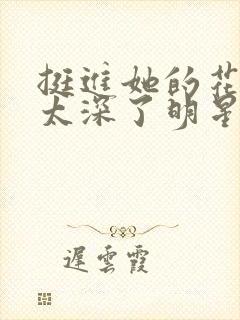 挺进她的花
太深了明星
遲雲霞